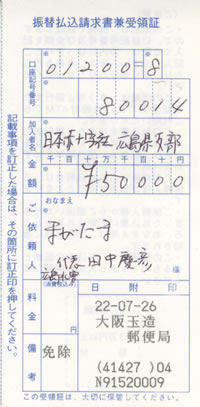 振替払込請求書兼受領証
口座記号番号
01200=8
80014
加入者名
日本赤十字社 広島県支部
金額
千百十万千百十円
¥50000
ご依頼人
おなまえ
まがたま
代表 田中慶彦
様
料金
(消費税込み)
円
日附印
22-07-26
大阪玉造
郵便局
備考
免除
(41427)04
N91520009
記載事項を訂正した場合は、その箇所に訂正印を押してください。
この受領証は、大切に保管してください。